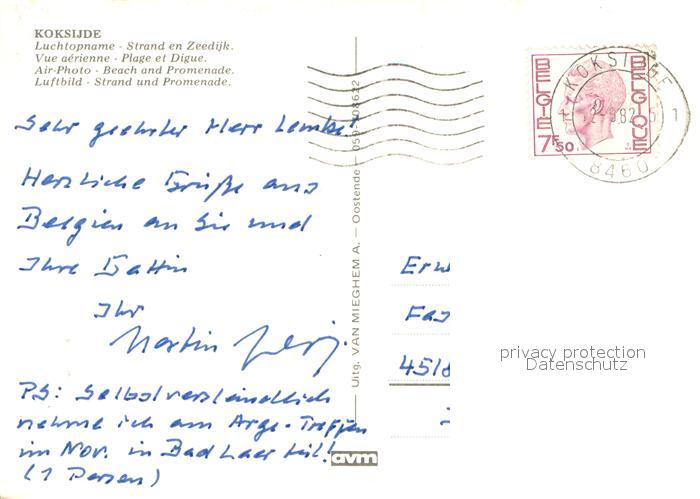 KOKSIJDE
Luchtopname - Strand en Zeedijk.
Vue aérienne - Plage et Digue.
Air-Photo - Beach and Promenade.
Luftbild - Strand und Promenade.
Sehr geehrter Herr Lemke!
Herzliche Grüße aus
Belgien an Sie und
Ihre Gattin
Ihr
Martin
PS: Selbstverständlich
nehme ich am Arge-Treffen
im Nov. in Bad Laer teil!
(1 Person)
Uitg. VAN MIEGHEM A. — Oostende —
avm
BELGIE
BELGIQUE
7F50
KOKSIJDE
8460
1
Erw
Fas
privacy protection
Datenschutz